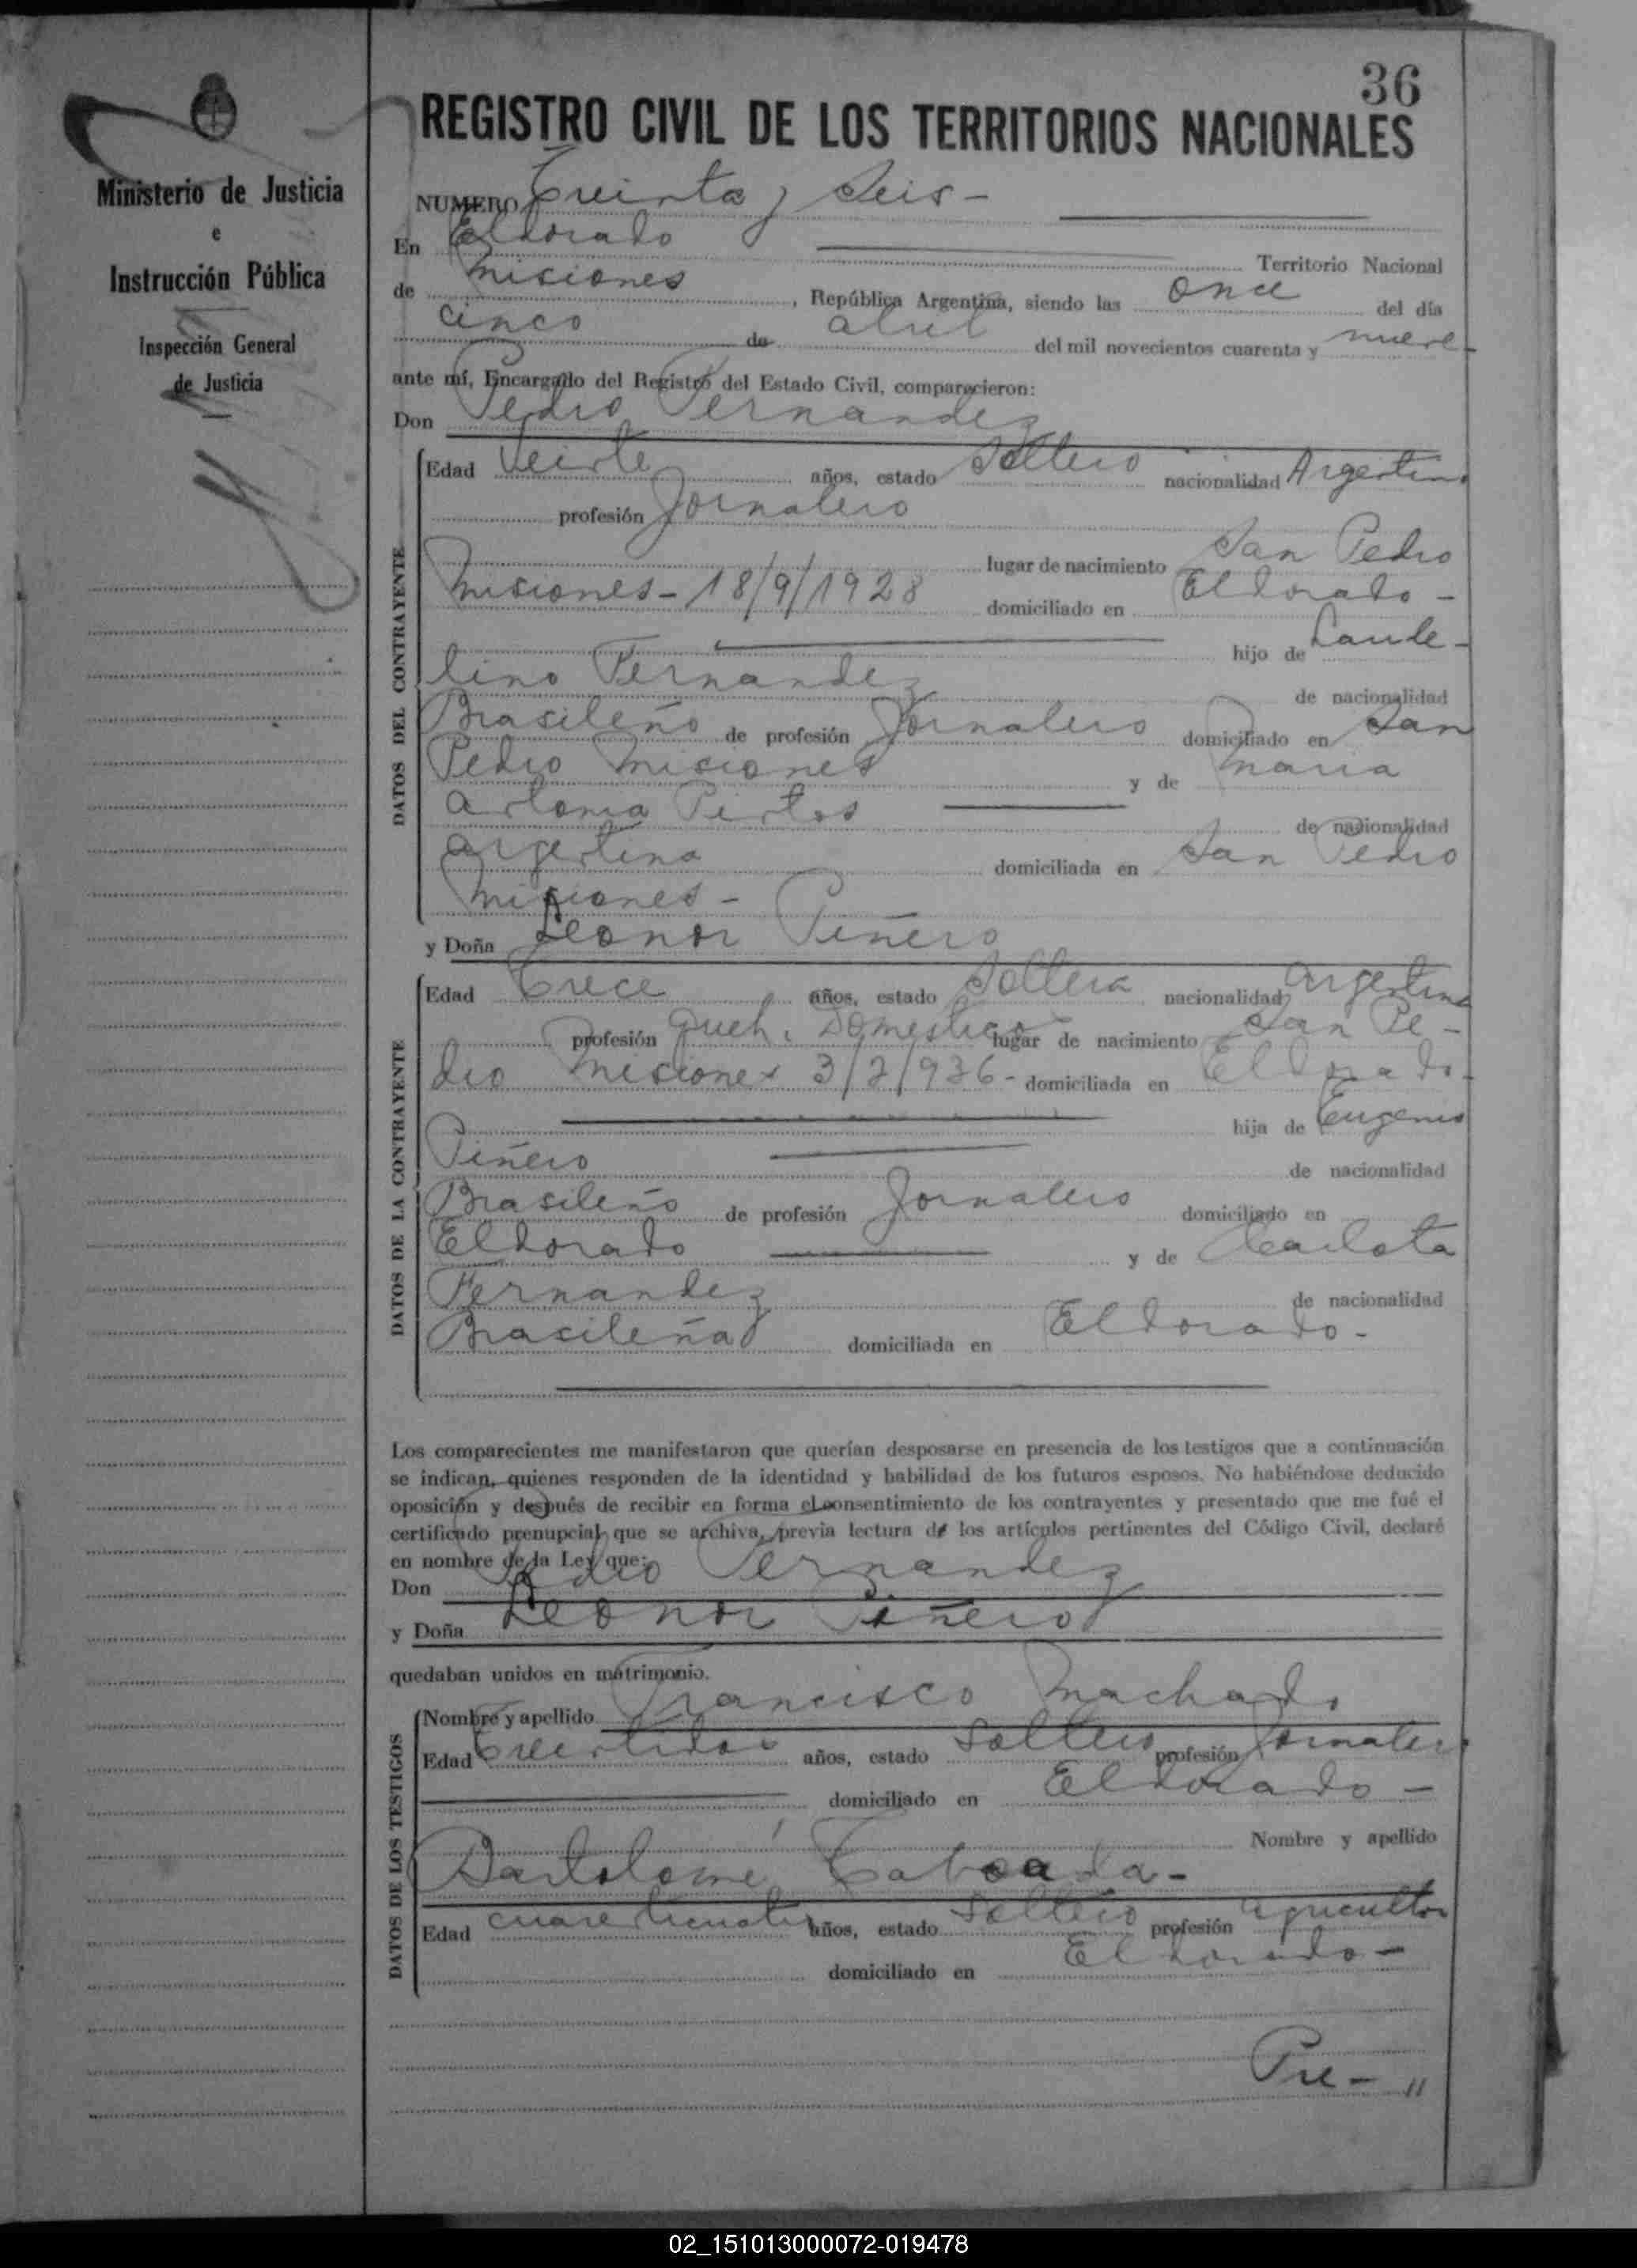 36
REGISTRO CIVIL DE LOS TERRITORIOS NACIONALES
Ministerio de Justicia
e
Instrucción Pública
Inspección General
de Justicia
NUMERO Treinta y Seis -
En Eldorado Territorio Nacional
de Misiones, República Argentina, siendo las once del día
cinco de abril del mil novecientos cuarenta y nueve -
ante mí, Encargado del Registro del Estado Civil, comparecieron:
Don Pedro Fernandez
DATOS DEL CONTRAYENTE
Edad Veinte años, estado Soltero nacionalidad Argentino
profesión Jornalero
lugar de nacimiento San Pedro
Misiones - 18/9/1928 domiciliado en Eldorado -
hijo de Laude-
lino Fernandez de nacionalidad
Brasileño de profesión Jornalero domiciliado en San
Pedro Misiones y de Maria
Antonia de nacionalidad
argentina domiciliada en San Pedro
Misiones -
y Doña Leonor Piñero
DATOS DE LA CONTRAYENTE
Edad Trece años, estado Soltera nacionalidad argentina
profesión Queh. Domesticos lugar de nacimiento San Pe-
dro Misiones 3/2/936 - domiciliada en Eldorado -
hija de Eugenio
Piñero de nacionalidad
Brasileño de profesión Jornalero domiciliado en
Eldorado y de Carlota
Fernandez de nacionalidad
Brasileña domiciliada en Eldorado -
Los comparecientes me manifestaron que querían desposarse en presencia de los testigos que a continuación
se indican, quienes responden de la identidad y habilidad de los futuros esposos. No habiéndose deducido
oposición y después de recibir en forma el consentimiento de los contrayentes y presentado que me fué el
certificado prenupcial que se archiva, previa lectura de los artículos pertinentes del Código Civil, declaré
en nombre de la Ley que:
Don Pedro Fernandez
y Doña Leonor Piñero
quedaban unidos en matrimonio.
DATOS DE LOS TESTIGOS
Nombre y apellido Francisco Machado
Edad Treintidos años, estado Soltero profesión Jornalero
domiciliado en Eldorado -
Nombre y apellido
Bartolomé Taboada -
Edad cuarenticuatro años, estado Soltero profesión agricultor
domiciliado en Eldorado -
Pre - "
02_151013000072-019478